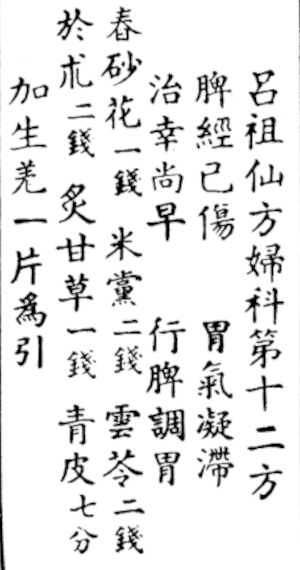 呂祖仙方婦科第十二方
脾經已傷 胃氣凝滯
治幸尚早 行脾調胃
春砂花一錢 米黨二錢 雲苓二錢
於朮二錢 炙甘草一錢 青皮七分
加生羌一片為引